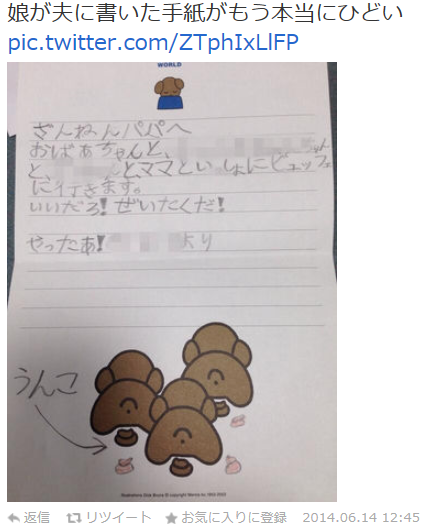 娘が夫に書いた手紙がもう本当にひどい
pic.twitter.com/ZTphIxLlFP
WORLD
ざんねんパパへ
おばあちゃんと、
と、 とママといっしょにビュッフェ
に行きます。
いいだろ!ぜいたくだ!
やったぁ! より
うんこ
Illustrations Dick Bruna © copyright Mercis bv, 1953-2003
返信 リツイート お気に入りに登録 2014.06.14 12:45